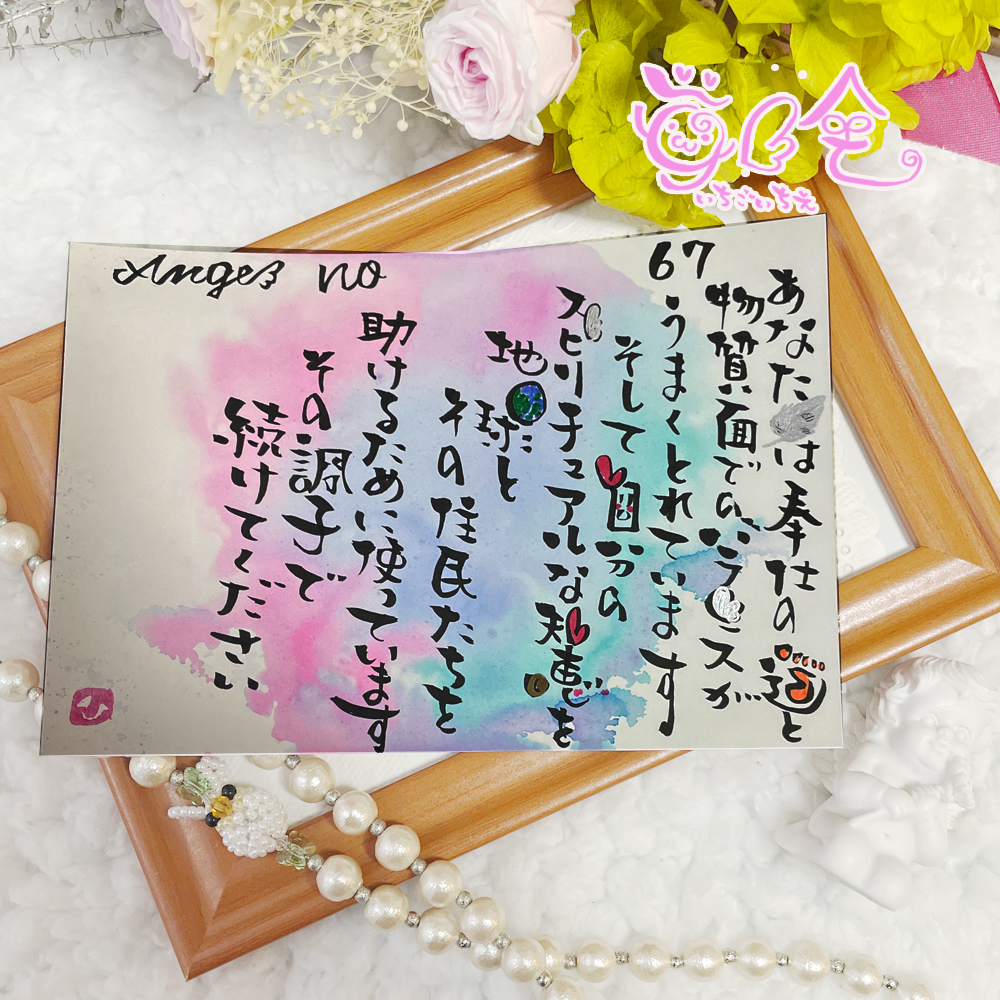 Angel no
67
あなたは奉仕の道と
物質面でのバランスが
うまくとれています
そして自分の
スピリチュアルな知恵を
地球と
その住民たちを
助けるために使っています
その調子で
続けてください
いちごいちえ